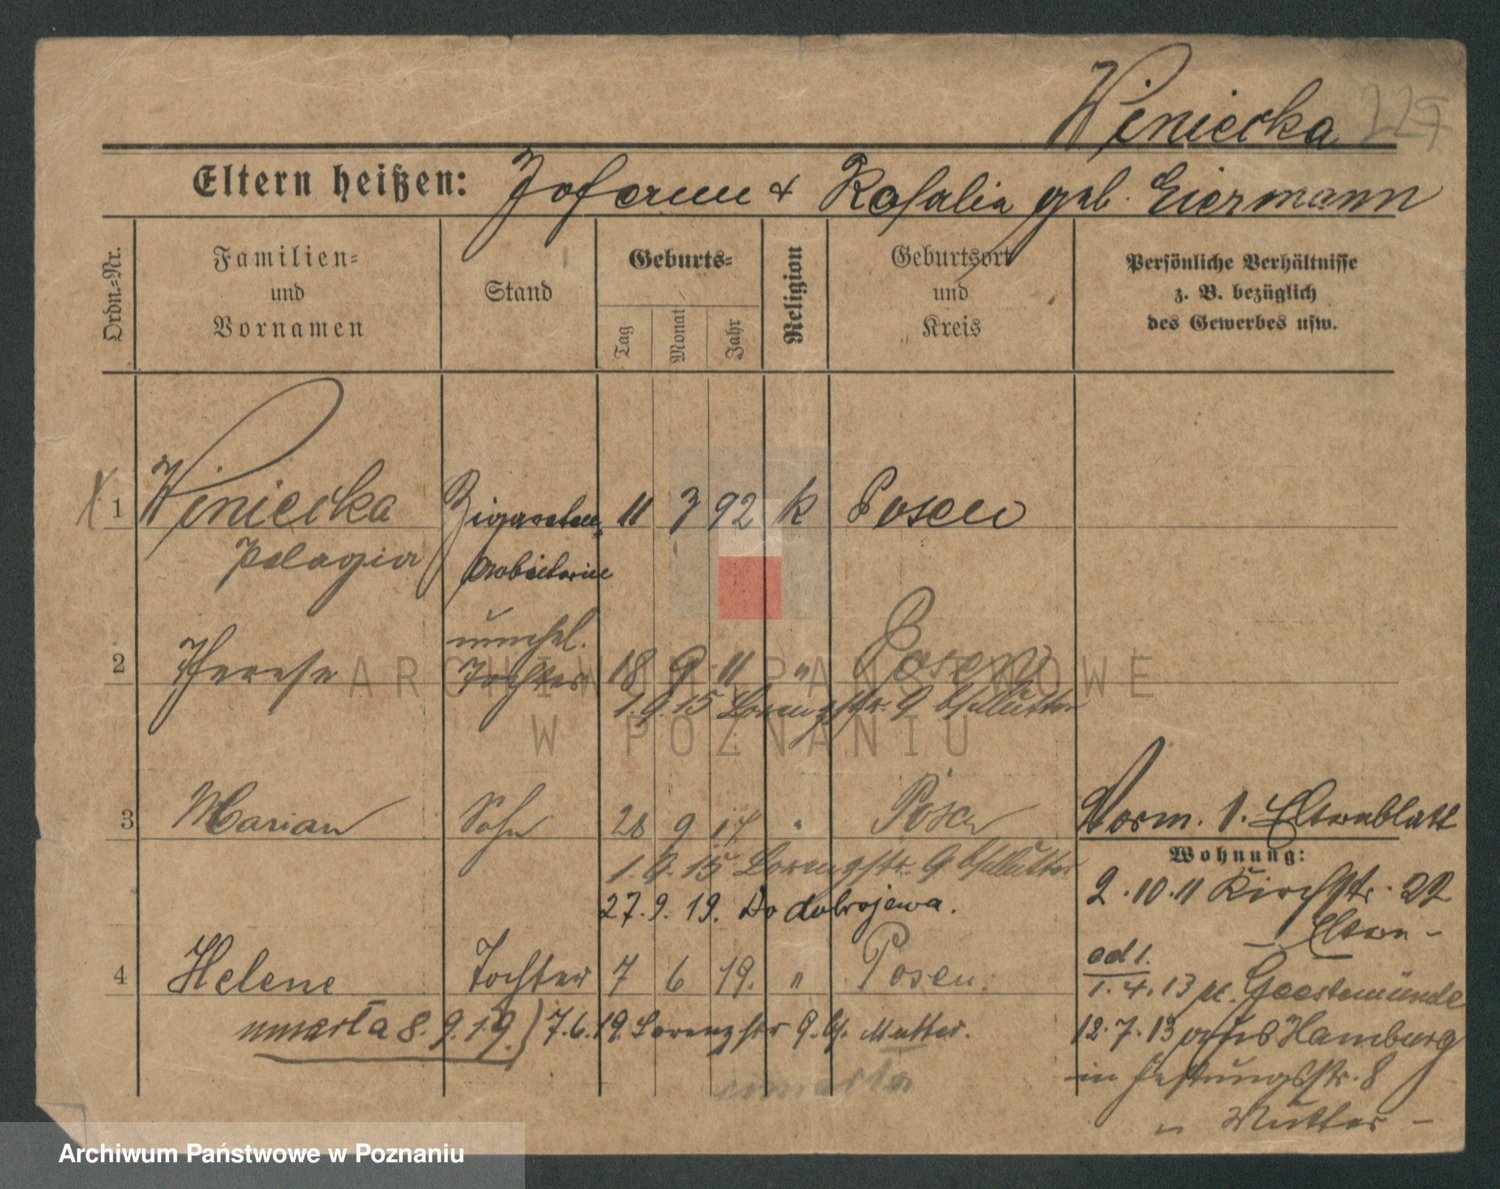 Winiecka 227
Eltern heißen: Johann + Rosalia geb. Eiermann
Ordn.-Nr.
Familien-
und
Vornamen
Stand
Geburts-
Tag
Monat
Jahr
Religion
Geburtsort
und
Kreis
Persönliche Verhältnisse
z. B. bezüglich
des Gewerbes usw.
X 1 Winiecka Zigaretten 11 3 92 k Posen
Pelagia Arbeiterin
unehel.
2 Therese Tochter 18 9 11 " Posen
1.9.15 Lorenzstr. 9 b/Mutter
3 Marian Sohn 28 9 14 " Posen Vorm. 1. Elternblatt
Wohnung:
1.9.15 Lorenzstr. 9 b/Mutter 2.10.11 Kirchstr. 22
27.9.19. Do dobrojewa. - Eltern -
4 Helene Tochter 7 6 19. " Posen. ad 1.
1.4.13 n. Geestemünde
umarła 8.9.19.) 7.6.19. Lorenzstr 9. b/. Mutter. 12.7.13 aus Hamburg
in Festungsstr. 8
umarła
- Mutter -
ARCHIWUM PAŃSTWOWE
W POZNANIU
Archiwum Państwowe w Poznaniu